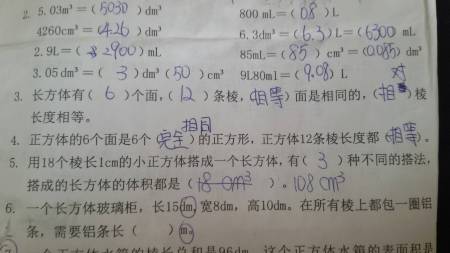 2. 5.03m³＝(5030) dm³ 800 mL＝(0.8)L
4260cm³＝(4.26) dm³ 6.3dm³＝(6.3)L＝(6300 mL
2.9L＝(2900)mL 85mL＝(85)cm³＝(0.085)dm³
3.05 dm³＝(3)dm³(50)cm³ 9L80ml＝(9.08)L
3. 长方体有(6)个面,(12)条棱,(相等)面是相同的,(相对)棱
长度相等。
4. 正方体的6个面是6个(完全相同)的正方形,正方体12条棱长度都(相等)。
5. 用18个棱长1cm的小正方体搭成一个长方体,有(3)种不同的搭法,
搭成的长方体的体积都是(18 cm³)。108cm³
6. 一个长方体玻璃柜,长15dm,宽8dm,高10dm。在所有棱上都包一圈铝
条,需要铝条长( )m。
一个正方体水箱的棱长总和是96dm,这个正方体水箱的表面积是